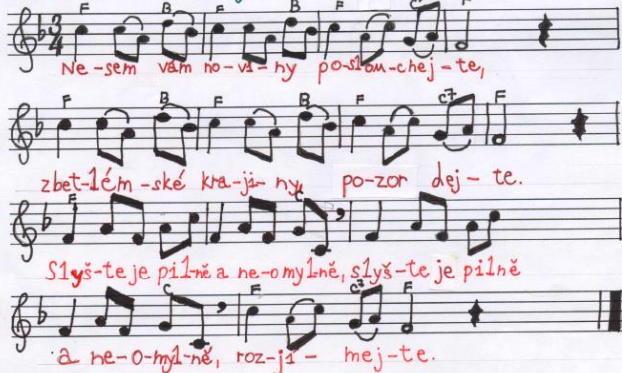 F B F B F C7 F
Ne-sem vám no-vi-ny po-slou-chej-te,
F B F B F C7 F
zbet-lém-ské kra-ji-ny, po-zor dej-te.
F C
Slyš-te je pil-ně a ne-o-mylně, slyš-te je pilně
F C F C7 F
a ne-o-myl-ně, roz-jí-mej-te.